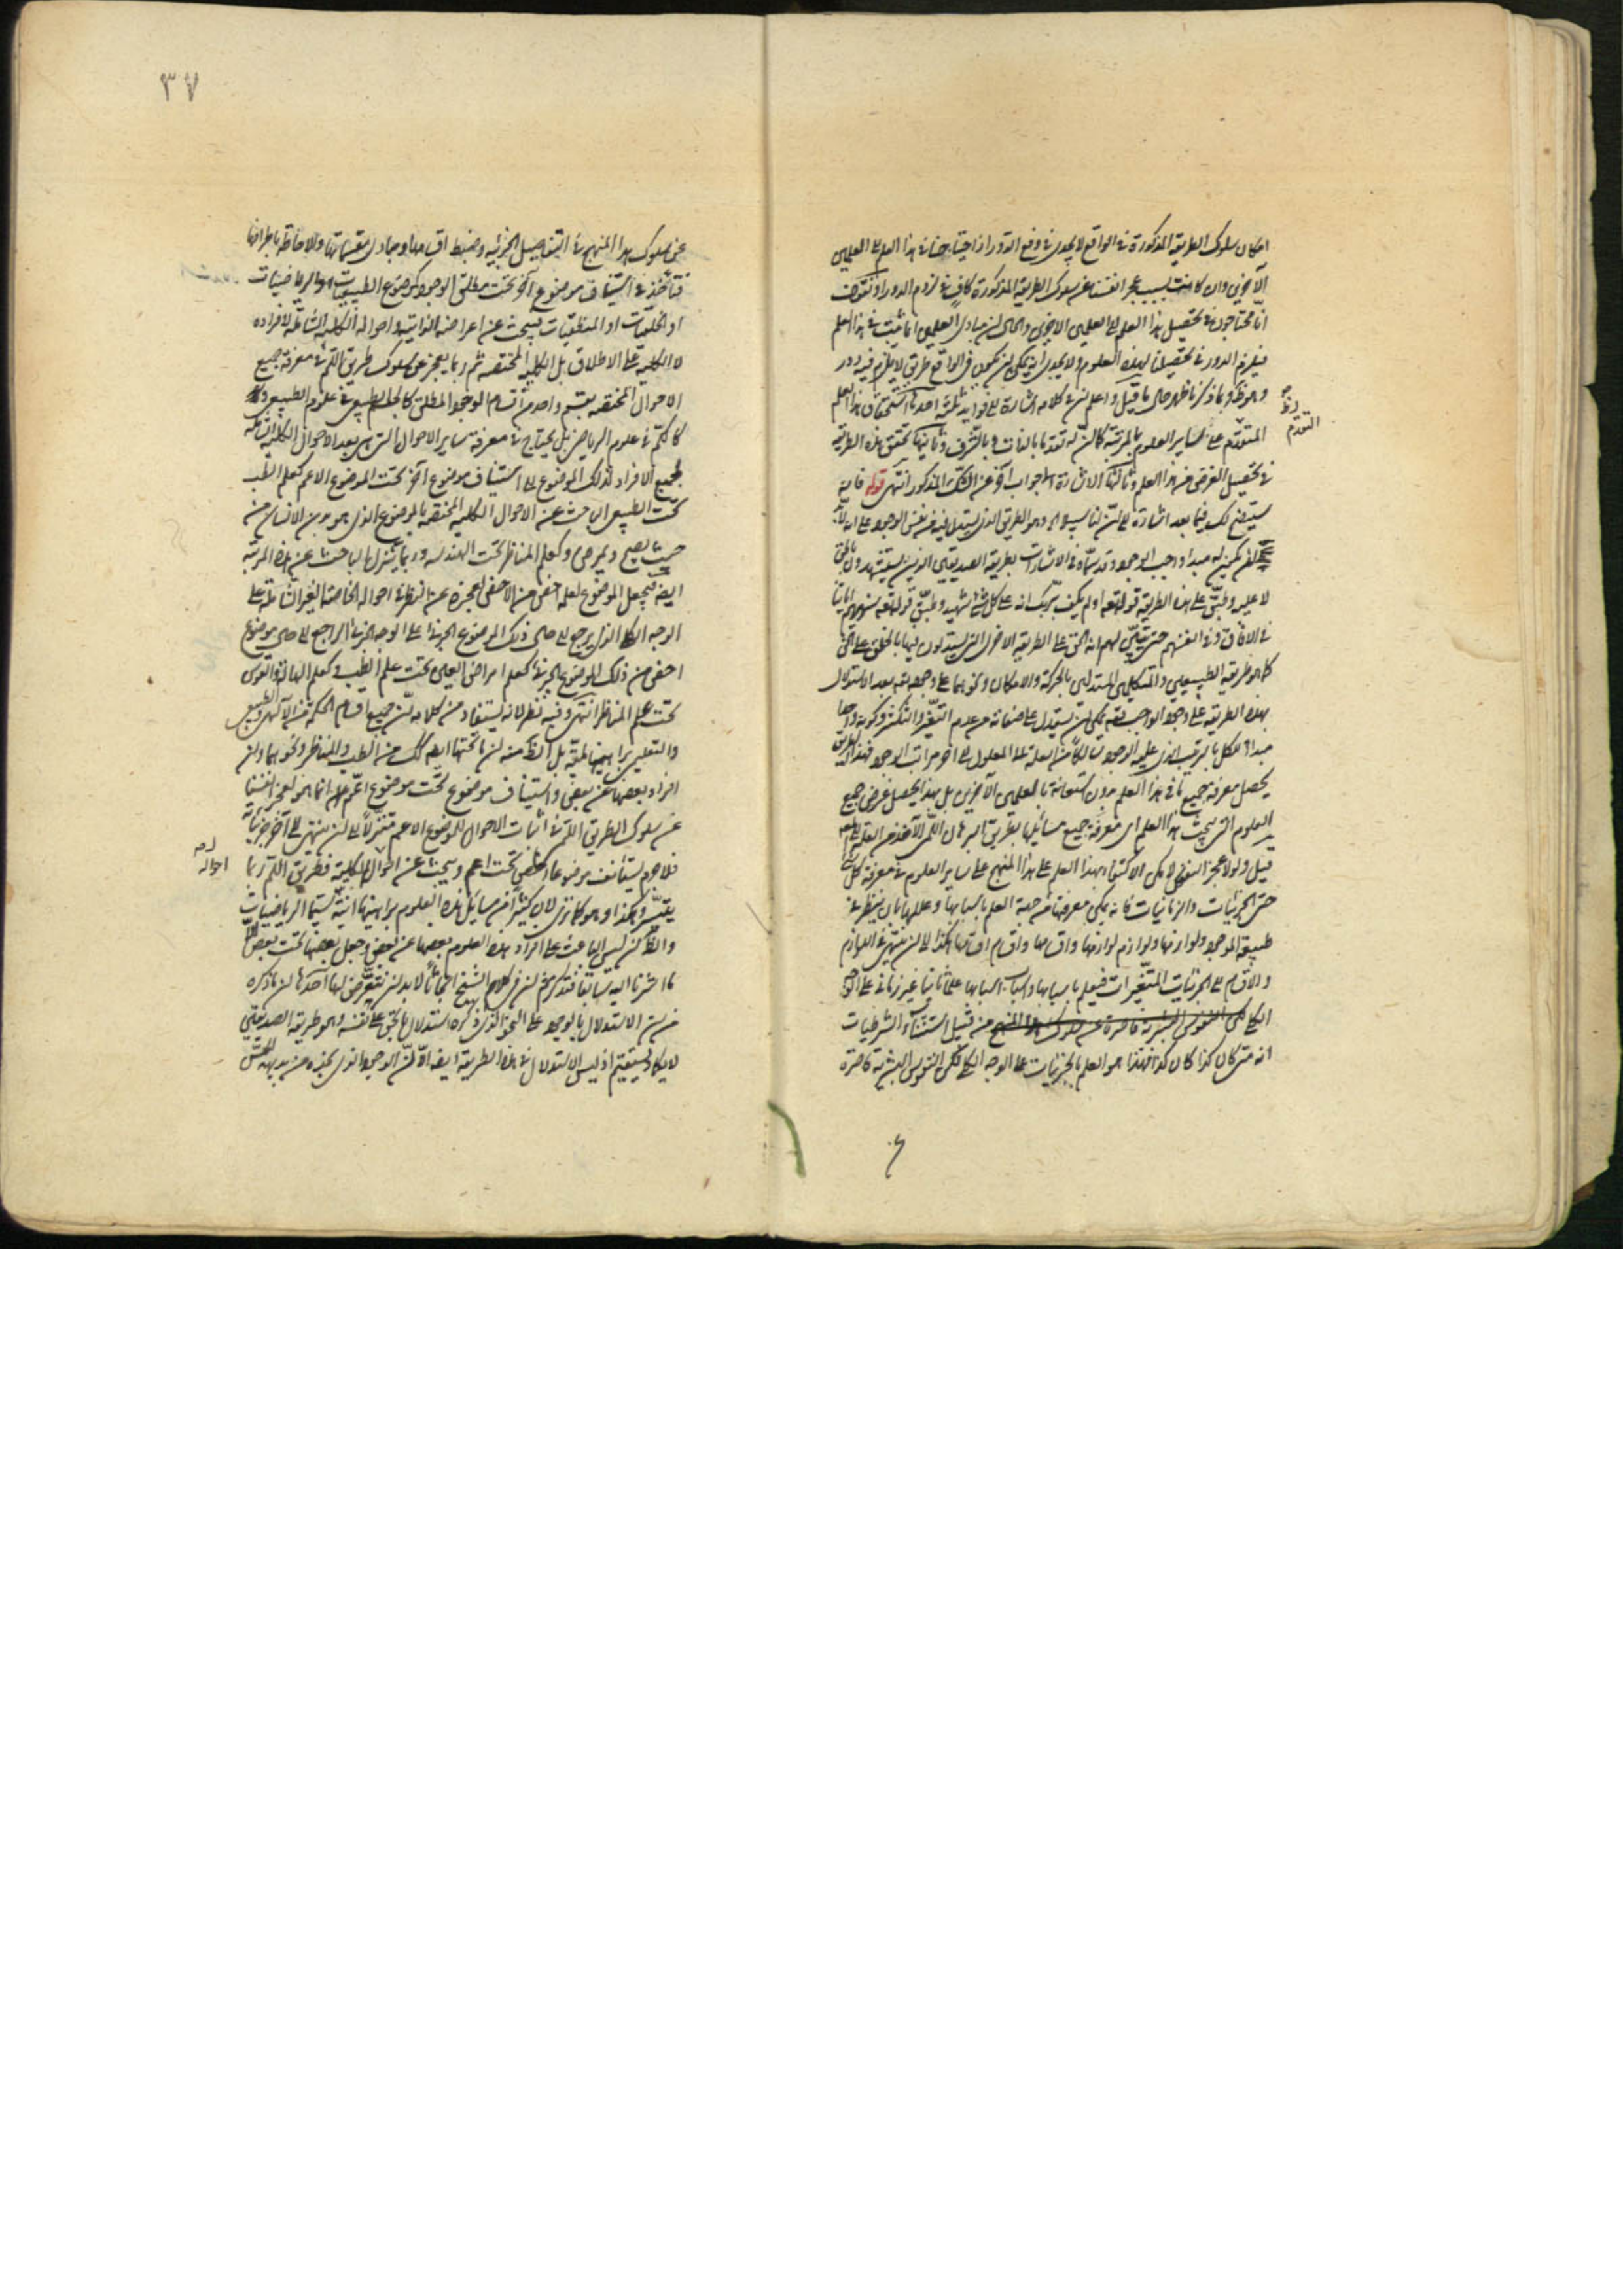 امکان سلوک الطریقة المذکورة فی الواقع لا یجدی فی دفع الدور اذ احتیاجنا فی هذا العلم الی العلمین
الآخرین وان کانت بسبب عجز انفسنا عن سلوک الطریقة المذکورة کاف فی لزوم الدور اذ نقول
انا محتاجون فی تحصیل هذا العلم الی العلمین الاخیرین والحال ان مبادی العلمین انما یثبت فی هذا العلم
فیلزم الدور فی تحصیلنا لهذه العلوم ولا یجدی انه یمکن ان یکون فی الواقع طریق لا یلزم فیه دور
وهو ظ وبما ذکرنا ظهر حال ما قیل واعلم ان فی کلامه اشارة الی فواید ثلثة احدها استحقاق هذا العلم
التقدم
المتقدم علی سایر العلوم بالمرتبة کما ان له تقدما بالذات وبالشرف وثانیها تحقق هذه الطریقة
فی تحصیل الغرض من هذا العلم وثالثها الاشارة الی جواب آخر عن الشک المذکور انتهی قوله فانه
سیتضح لک فیما بعد اشارة الی ان لنا سبیلا اه وهو الطریق الذی یستدل فیه من نفس الوجود علی انه لا
یکون له مبدا واجب الوجود وقد سماه فی الاشارات بطریقة الصدیقین الذین یستشهدون بالحق
لا علیه وطبق علی هذه الطریقة قوله تعه اولم یکف بربک انه علی کل شئ شهید وطبق قوله تعه سنریهم آیاتنا
فی الآفاق وفی انفسهم حتی یتبین لهم انه الحق علی الطریقة الاخری التی یستدلون فیها بالخلق علی الحق
کما هو طریقة الطبیعیین والمتکلمین المستدلین بالحرکة والامکان ونحوهما علی وجوده تعه بعد الاستدلال
بهذه الطریقة علی وجود الواجب تعه یمکن ان یستدل علی صفاته من عدم التغیر والتکثر وکونه واحدا
مبداء للکل بالترتیب الذی علیه الوجود سالکا من العلة الی المعلول الی اخر مراتب الوجود فبهذا الطریق
یحصل معرفة جمیع ما فی هذا العلم بدون استعانة بالعلمین الآخرین بل بهذا یحصل غرض جمیع
العلوم التی تحت هذا العلم ای معرفة جمیع مسائلها بطریق البرهان اللمی الآخذ من العلة الی المعلول
قیل ولولا عجز النفوس لامکن الاکتفاء بهذا العلم علی هذا المنهج علی سایر العلوم فی معرفة کل شئ
حتی الجزئیات والزمانیات فانه یمکن معرفتها من جهة العلم باسبابها وعللها بان ینظر فی
طبیعة الموجود ولوازمها ولوازم لوازمها واقسامها واقسام اقسامها وهکذا الی ان ینتهی فی اللوازم
والاقسام الی الجزئیات المتغیرات فیعلم باسبابها واسباب اسبابها علما ثابتا غیر زمانی علی الوجه
الکلی من قبیل استثناء الشرطیات
انه متی کان کذا کان کذا فهذا هو العلم بالجزئیات علی الوجه الکلی لکن النفوس البشریة قاصرة
٣٧
عن سلوک هذا المنهج فی التفاصیل الجزئیة وضبط اقسامها ومبادی مقسماتها والاحاطة باطرافها
فتأخذ فی استیناف موضوع آخر تحت مطلق الوجود کموضوع الطبیعیات والریاضیات
او الخلقیات او المنطقیات فیبحث عن اعراضه الذاتیة واحواله الکلیة الشاملة لافراده
لا الکلیة علی الاطلاق بل الکلیة المختصة ثم ربما یعجز عن سلوک طریق اللم فی معرفة جمیع
الاحوال المختصة بقسم واحد من اقسام الوجود المطلق کالجسم الطبیعی فی علوم الطبیعی
کالکم فی علوم الریاضی بل یحتاج فی معرفة سایر الاحوال التی هی بعد الاحوال الکلیة الشاملة
لجمیع الافراد لذلک الموضوع الی استیناف موضوع آخر تحت الموضوع الاعم کعلم الطب
تحت الطبیعی الباحث عن الاحوال الکلیة المختصة بالموضوع الذی هو بدن الانسان من
حیث یصح ویمرض وکعلم المناظر تحت الهندسة وربما یتنزل الباحث عن هذه المرتبة
ایضا فیجعل الموضوع لعلمه اخص من الاخص لعجزه عن النظر فی احواله الخاصة الغیر الشاملة علی
الوجه الکلی الذی یرجع الی حال ذلک الموضوع الجزئی الا علی الوجه الجزئی الراجع الی حال موضوع
اخص من ذلک الموضوع الجزئی کعلم امراض العین تحت علم الطب وکعلم الهالة والقوس
تحت علم المناظر انتهی وفیه نظر لانه یستفاد من کلامه ان جمیع اقسام الحکمة من الآلهی والطبیعی
والتعلیمی براهینها لمیة بل الظ منه ان ما تحتها ایضا کک من الطب والمناظر ونحوهما وان
افراد بعضها عن بعض واستیناف موضوع تحت موضوع اعم انما هو لعجز انفسنا
عن سلوک الطریق اللم فی اثبات الاحوال للموضوع الاعم متنزلا الی ان ینتهی الی آخر جزئیاته
احواله
فلا جرم یستأنف موضوعا اخص تحت اعم ویبحث عن احواله الکلیة فطریق اللم ربما
یتیسر وهکذا وهو کما تری لان کثیرا من مسایل هذه العلوم براهینها انیة لا سیما الریاضیات
والظ ان لیس الباعث علی افراد هذه العلوم بعضها عن بعض وجعل بعضها تحت بعض
ما اشرنا الیه سابقا فتذکر ثم ان فی کلام الشیخ ابحاثا لا بد ان نتعرض لها احدها ان ما ذکره
من ان الاستدلال بالوجود علی النحو الذی ذکره استدلال بالحق علی نفسه وهو طریقة الصدیقین
لا یکاد یستقیم اذ لیس الاستدلال فی هذه الطریقة ایضا الا ان الوجود الذی نجده من بدیهة الحس